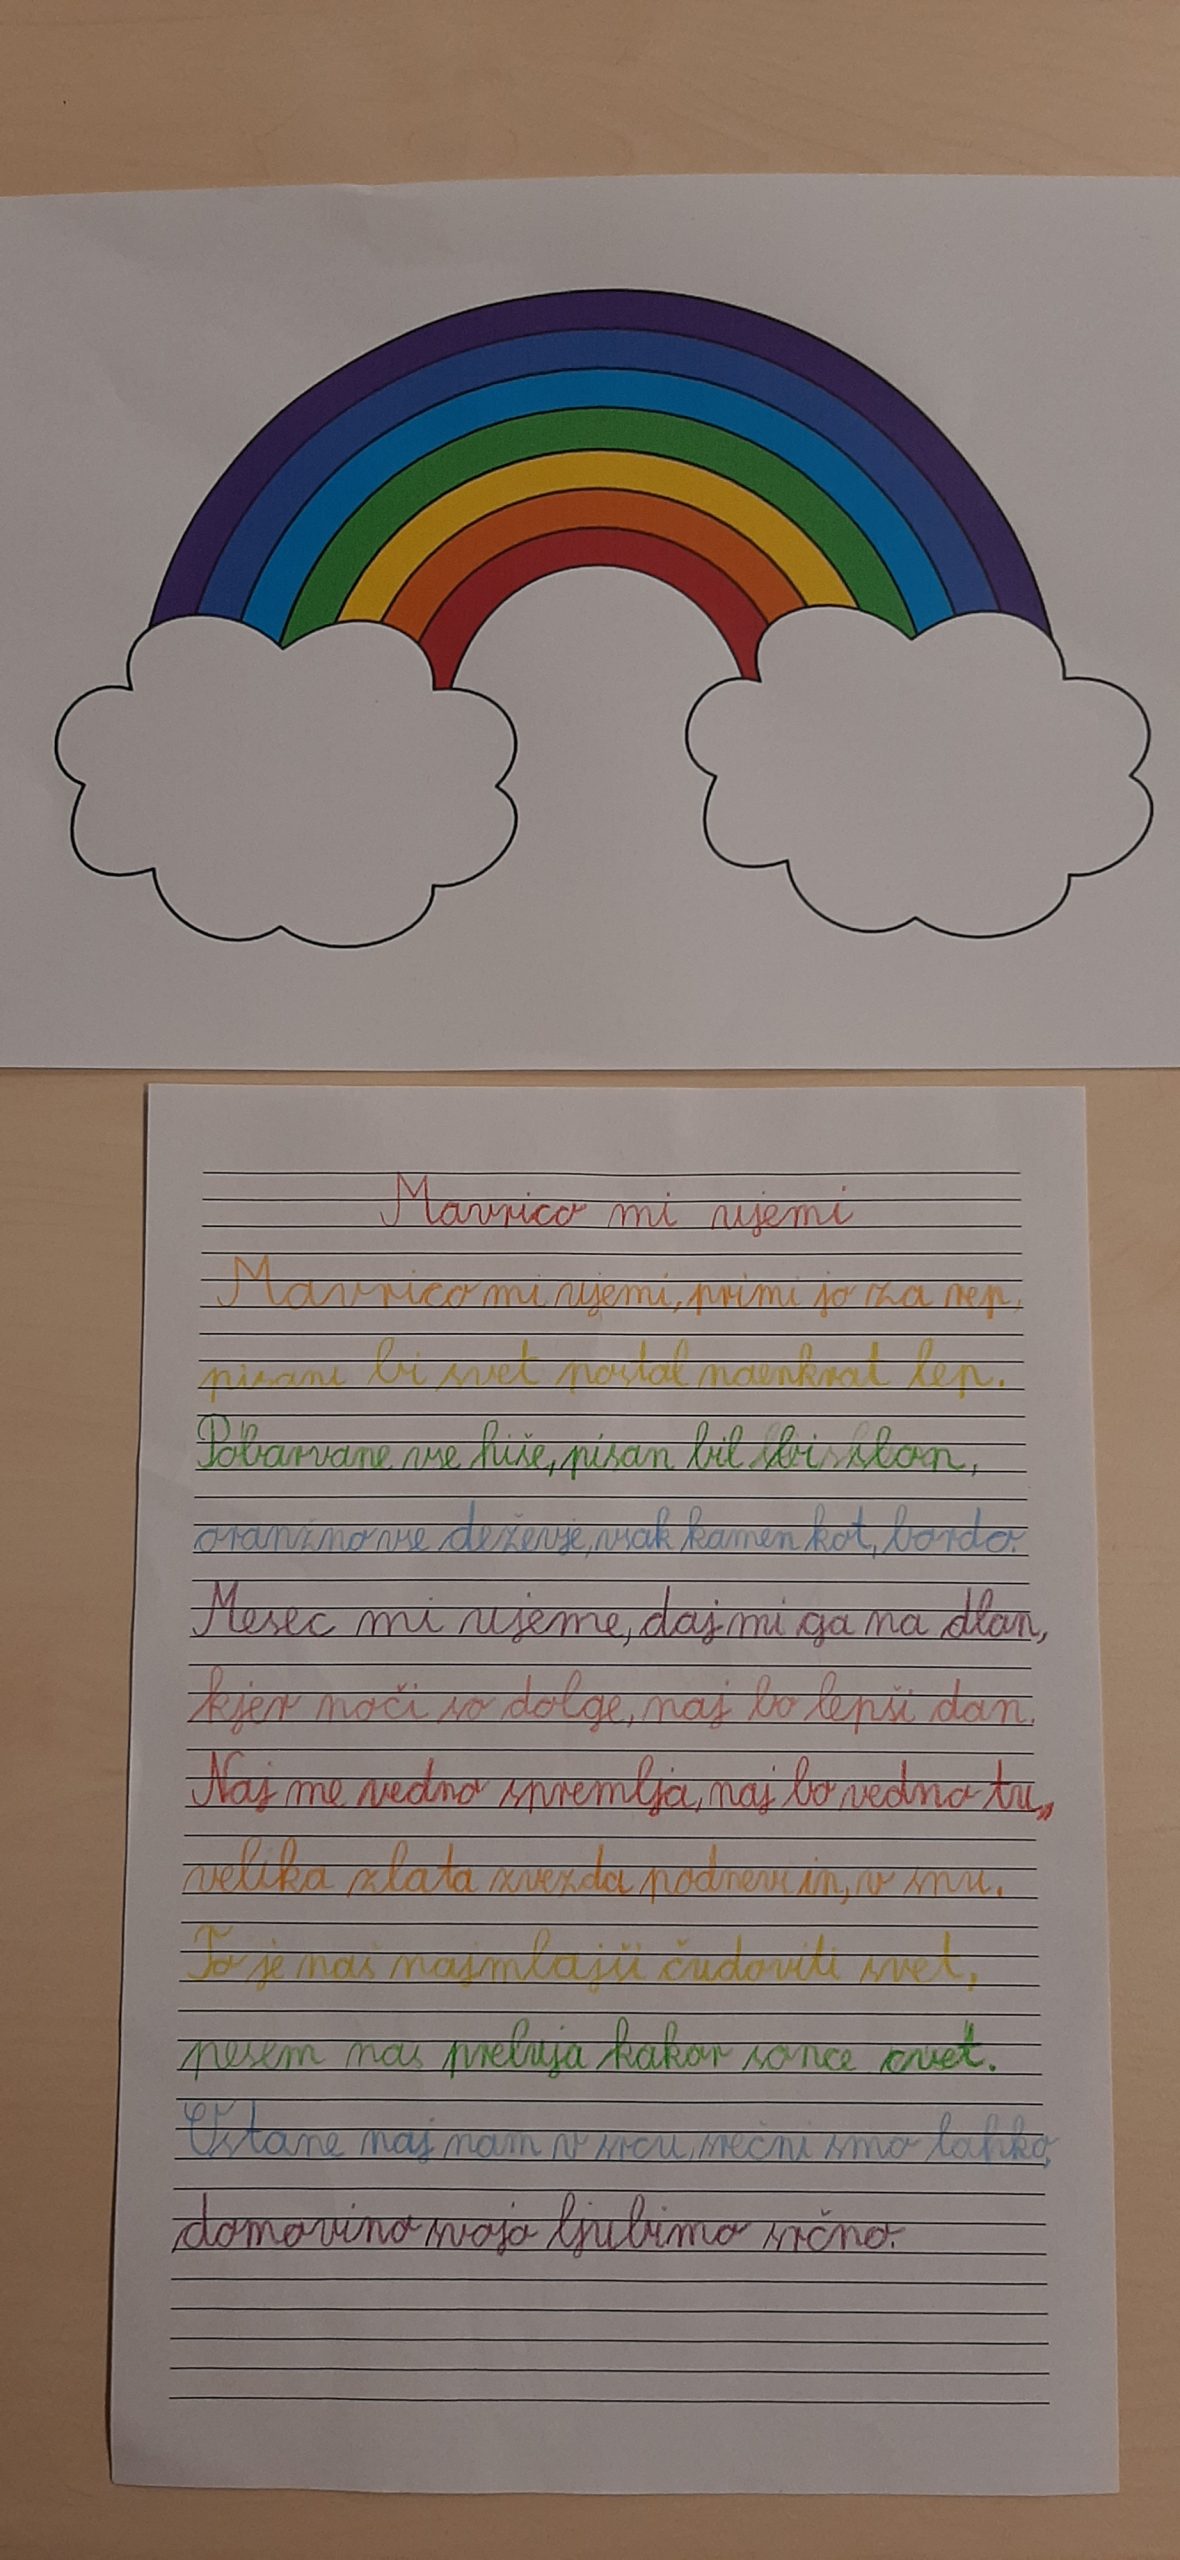 Mavrico mi ujemi
Mavrico mi ujemi, primi jo za rep,
pisani bi svet postal naenkrat lep.
Pobarvane vse hiše, pisan bil bi slon,
oranžno vse deževje, vsak kamen kot, bordo.
Mesec mi ujeme, daj mi ga na dlan,
kjer noči so dolge, naj bo lepši dan.
Naj me vedno spremlja, naj bo vedno tu,
velika zlata zvezda podnevi in, v snu.
To je naš najmlajši čudoviti svet,
pesem nas prebuja kakor sonce cvet.
Ostane naj nam v srcu, srečni smo lahko,
domovino svojo ljubimo srčno.